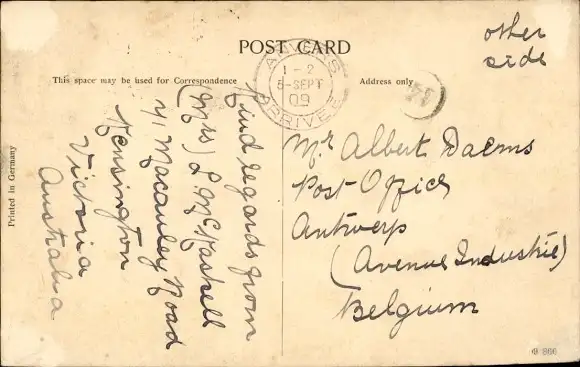 POST CARD
other
side
This space may be used for Correspondence
Address only
ANVERS
1-2
5-SEPT
09
ARRIVEE
Kind regards from
(Mrs) L McKaskell
41 Macauley Road
Kensington
Victoria
Australia
Mr Albert Daems
Post Office
Antwerp
(Avenue Industrie)
Belgium
Printed in Germany